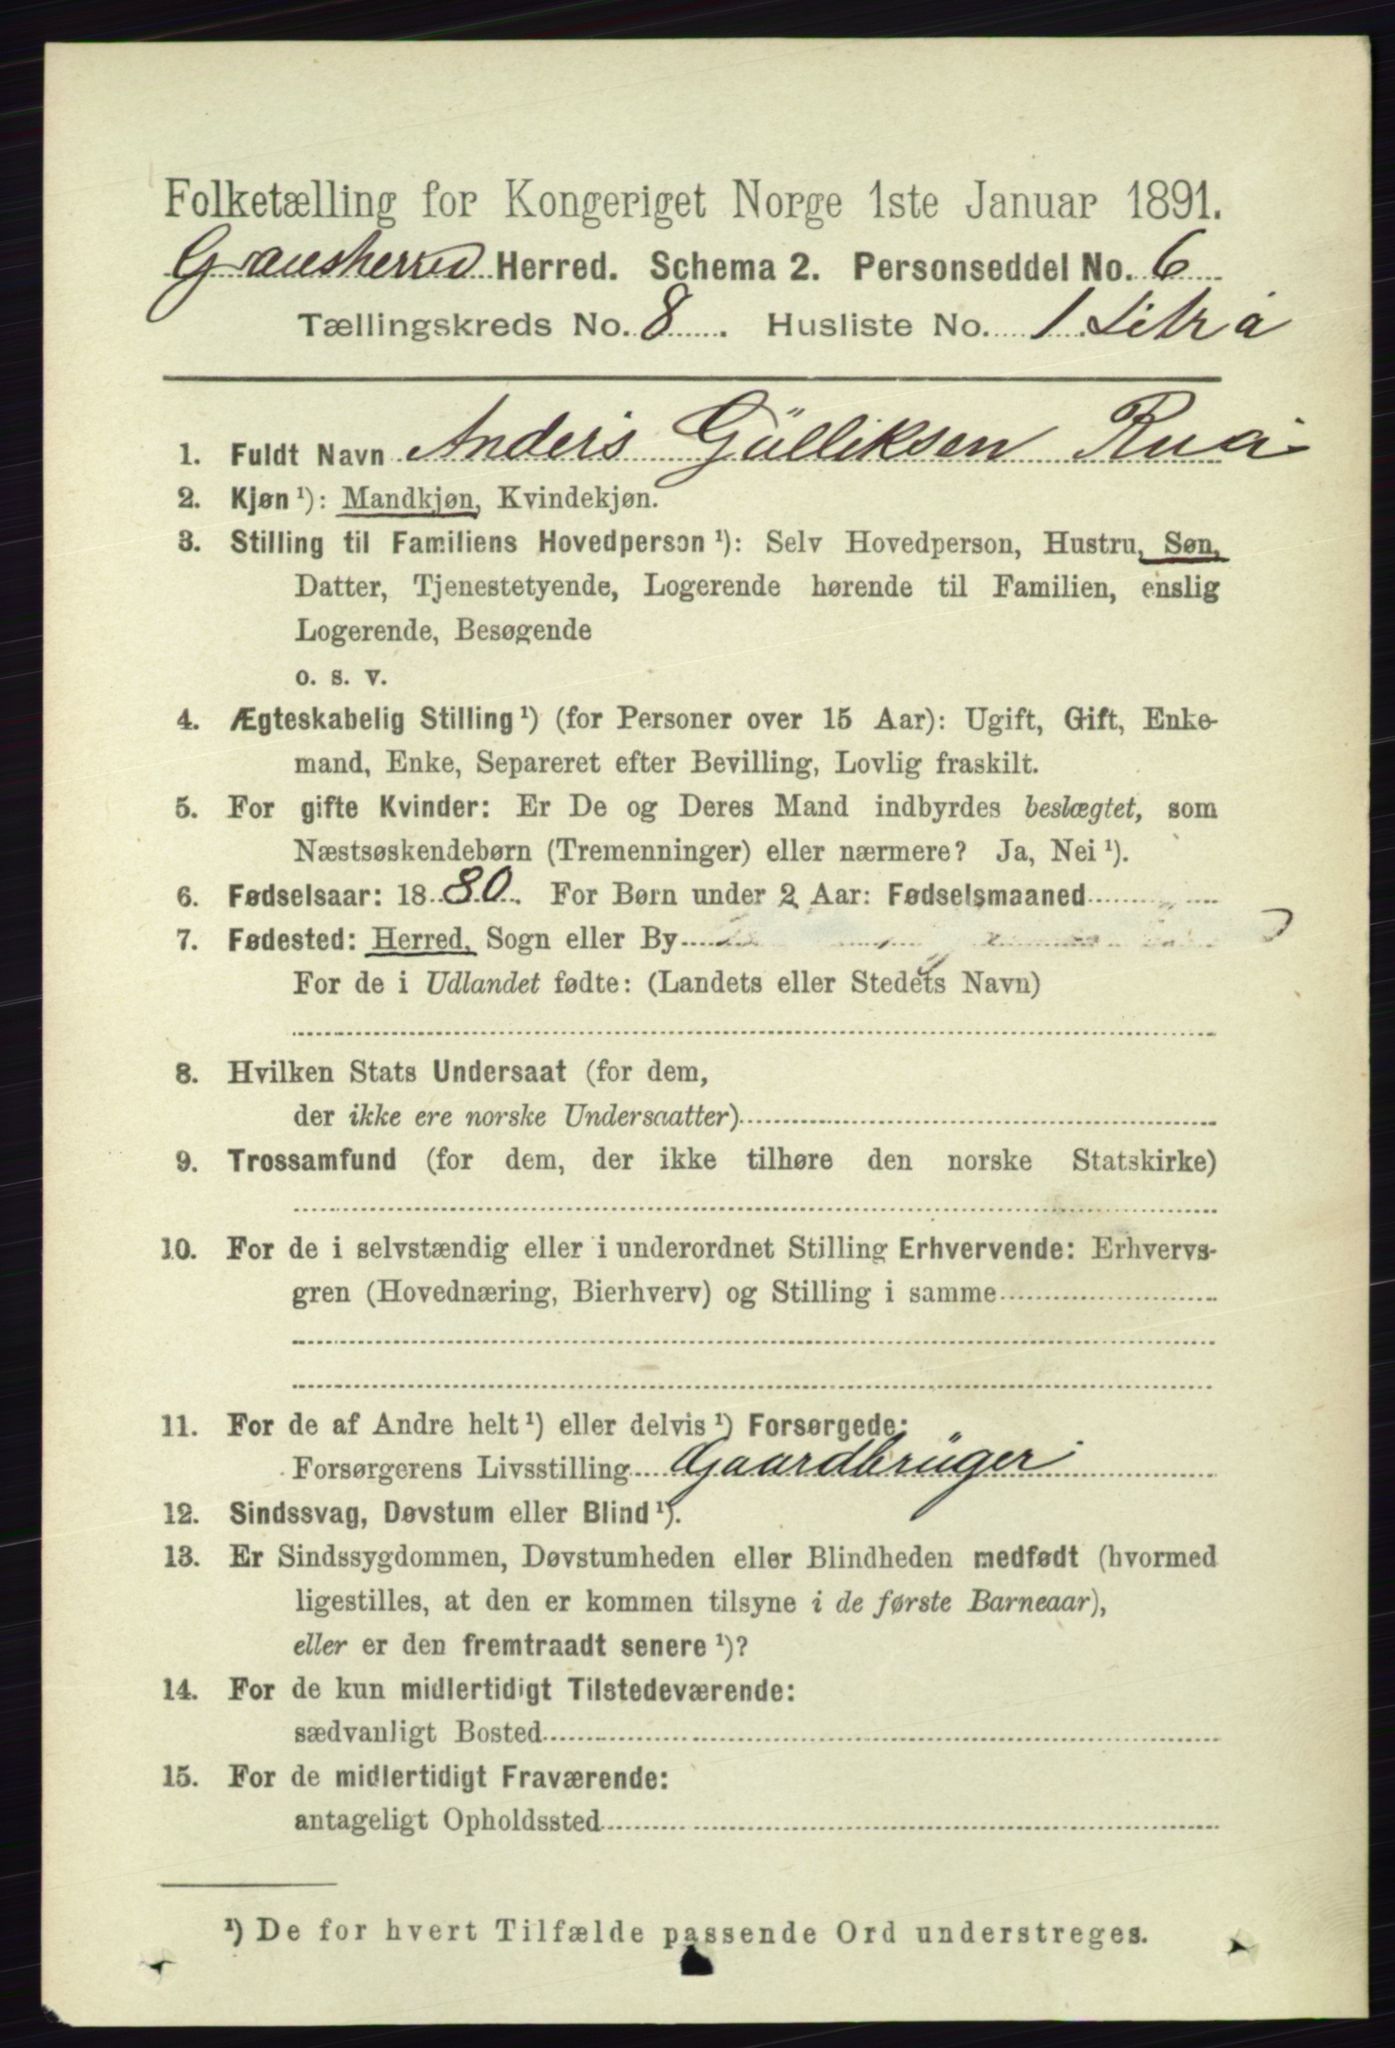 Folketælling for Kongeriget Norge 1ste Januar 1891.
Gransherred Herred. Schema 2. Personseddel No. 6
Tællingskreds No. 8. Husliste No. 1 Litr a
1. Fuldt Navn Anders Gülliksen Rua
2. Kjøn¹): Mandkjøn, Kvindekjøn.
3. Stilling til Familiens Hovedperson¹): Selv Hovedperson, Hustru, Søn,
Datter, Tjenestetyende, Logerende hørende til Familien, enslig
Logerende, Besøgende
o. s. v.
4. Ægteskabelig Stilling¹) (for Personer over 15 Aar): Ugift, Gift, Enke-
mand, Enke, Separeret efter Bevilling, Lovlig fraskilt.
5. For gifte Kvinder: Er De og Deres Mand indbyrdes beslægtet, som
Næstsøskendebørn (Tremenninger) eller nærmere? Ja, Nei¹).
6. Fødselsaar: 1880. For Børn under 2 Aar: Fødselsmaaned
7. Fødested: Herred, Sogn eller By
For de i Udlandet fødte: (Landets eller Stedets Navn)
8. Hvilken Stats Undersaat (for dem,
der ikke ere norske Undersaatter)
9. Trossamfund (for dem, der ikke tilhøre den norske Statskirke)
10. For de i selvstændig eller i underordnet Stilling Erhvervende: Erhvervs-
gren (Hovednæring, Bierhverv) og Stilling i samme
11. For de af Andre helt¹) eller delvis¹) Forsørgede:
Forsørgerens Livsstilling Gaardbrüger
12. Sindssvag, Døvstum eller Blind¹).
13. Er Sindssygdommen, Døvstumheden eller Blindheden medfødt (hvormed
ligestilles, at den er kommen tilsyne i de første Barneaar),
eller er den fremtraadt senere¹)?
14. For de kun midlertidigt Tilstedeværende:
sædvanligt Bosted
15. For de midlertidigt Fraværende:
antageligt Opholdssted
¹) De for hvert Tilfælde passende Ord understreges.